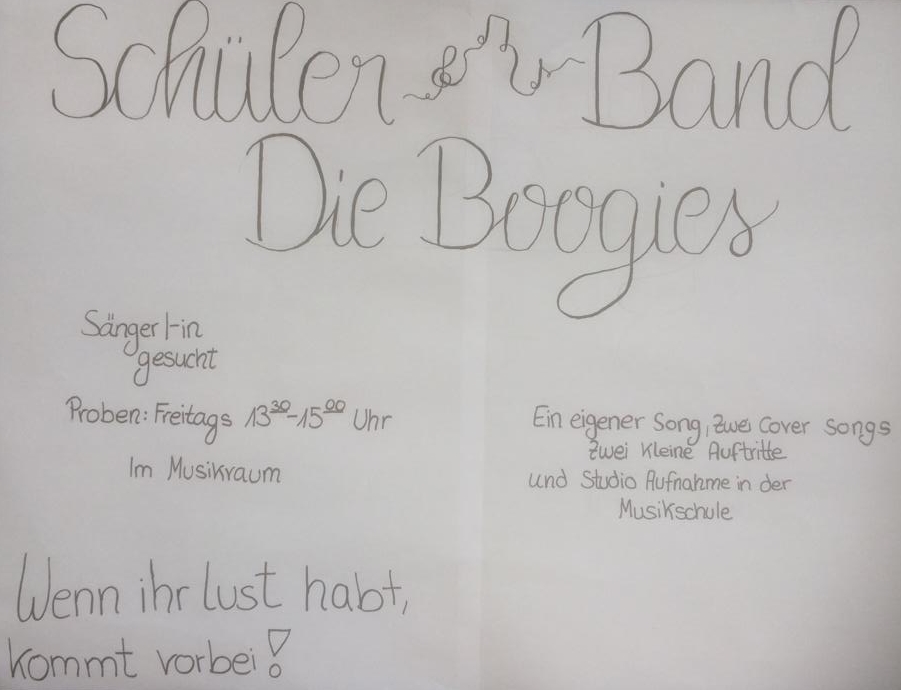 Schüler Band
Die Boogies
Sänger/-in
gesucht
Proben: Freitags 13³⁰-15⁰⁰ Uhr
Im Musikraum
Ein eigener Song, zwei Cover songs
zwei kleine Auftritte
und Studio Aufnahme in der
Musikschule
Wenn ihr lust habt,
kommt vorbei!